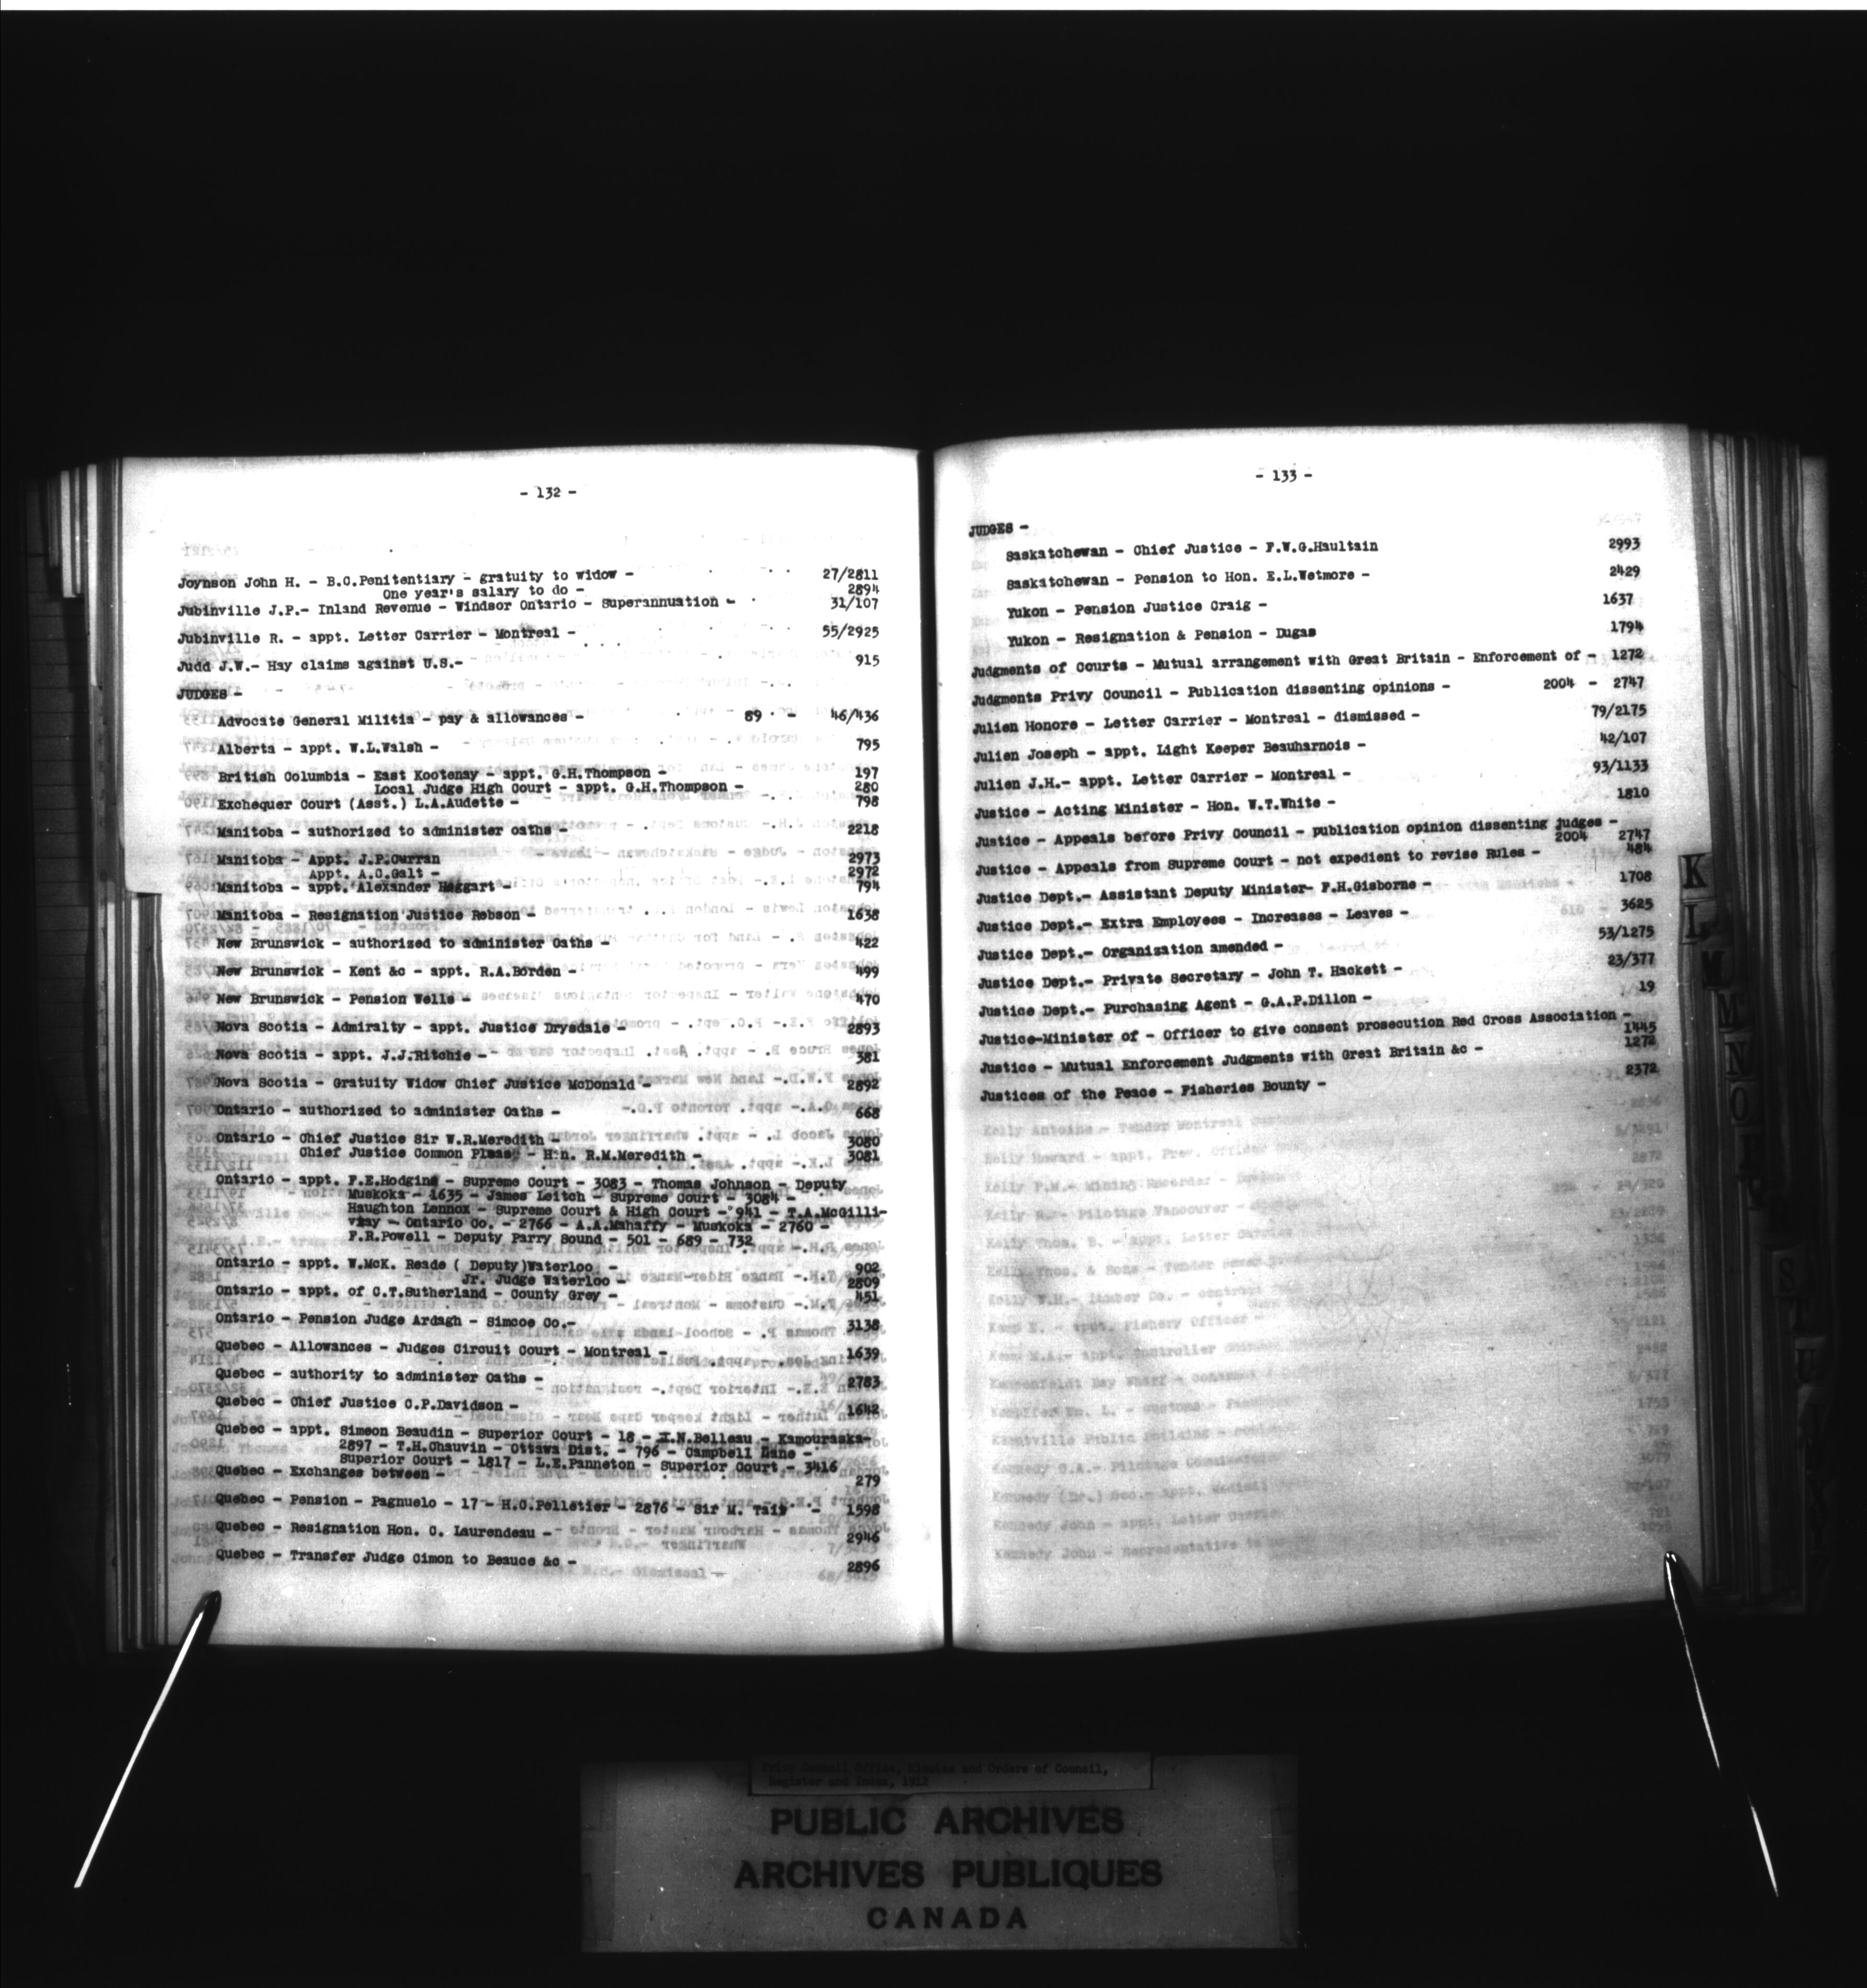 - 132 -
Joynson John H. - B.C.Penitentiary - gratuity to widow - 27/2811
One year's salary to do - 2894
Jubinville J.P.- Inland Revenue - Windsor Ontario - Superannuation - 31/107
Jubinville R. - appt. Letter Carrier - Montreal - 55/2925
Judd J.W.- Hay claims against U.S.- 915
JUDGES -
Advocate General Militia - pay & allowances - 89 - 46/436
Alberta - appt. W.L.Walsh - 795
British Columbia - East Kootenay - appt. G.H.Thompson - 197
Local Judge High Court - appt. G.H.Thompson - 280
Exchequer Court (Asst.) L.A.Audette - 798
Manitoba - authorized to administer oaths - 2218
Manitoba - Appt. J.P.Curran 2973
Appt. A.C.Galt - 2972
Manitoba - appt. Alexander Haggart - 794
Manitoba - Resignation Justice Robson - 1638
New Brunswick - authorized to administer Oaths - 422
New Brunswick - Kent &c - appt. R.A.Borden - 499
New Brunswick - Pension Wells - 470
Nova Scotia - Admiralty - appt. Justice Drysdale - 2893
Nova Scotia - appt. J.J.Ritchie - 381
Nova Scotia - Gratuity Widow Chief Justice McDonald - 2892
Ontario - authorized to administer Oaths - 668
Ontario - Chief Justice Sir W.R.Meredith - 3080
Chief Justice Common Pleas - Hon. R.M.Meredith - 3081
Ontario - appt. F.E.Hodgins - Supreme Court - 3083 - Thomas Johnson - Deputy
Muskoka - 1635 - James Leitch - Supreme Court - 3084 -
Haughton Lennox - Supreme Court & High Court - 941 - T.A.McGilli-
vray - Ontario Co. - 2766 - A.A.Mahaffy - Muskoka - 2760 -
F.R.Powell - Deputy Parry Sound - 501 - 689 - 732
Ontario - appt. W.McK. Reade ( Deputy)Waterloo - 902
Jr. Judge Waterloo - 2809
Ontario - appt. of C.T.Sutherland - County Grey - 451
Ontario - Pension Judge Ardagh - Simcoe Co.- 3138
Quebec - Allowances - Judges Circuit Court - Montreal - 1639
Quebec - authority to administer Oaths - 2783
Quebec - Chief Justice C.P.Davidson - 1642
Quebec - appt. Simeon Beaudin - Superior Court - 18 - I.N.Belleau - Kamouraska-
2897 - T.H.Chauvin - Ottawa Dist. - 796 - Campbell Lane -
Superior Court - 1817 - L.E.Panneton - Superior Court - 3416
Quebec - Exchanges between - 279
Quebec - Pension - Pagnuelo - 17 - H.C.Pelletier - 2876 - Sir M. Tait - 1598
Quebec - Resignation Hon. C. Laurendeau - 2946
Quebec - Transfer Judge Cimon to Beauce &c - 2896
- 133 -
JUDGES -
Saskatchewan - Chief Justice - F.W.G.Haultain 2993
Saskatchewan - Pension to Hon. E.L.Wetmore - 2429
Yukon - Pension Justice Craig - 1637
Yukon - Resignation & Pension - Dugas 1794
Judgments of Courts - Mutual arrangement with Great Britain - Enforcement of - 1272
Judgments Privy Council - Publication dissenting opinions - 2004 - 2747
Julien Honore - Letter Carrier - Montreal - dismissed - 79/2175
Julien Joseph - appt. Light Keeper Beauharnois - 42/107
Julien J.H.- appt. Letter Carrier - Montreal - 93/1133
Justice - Acting Minister - Hon. W.T.White - 1810
Justice - Appeals before Privy Council - publication opinion dissenting judges -
2004 2747
Justice - Appeals from Supreme Court - not expedient to revise Rules - 484
Justice Dept.- Assistant Deputy Minister- F.H.Gisborne - 1708
Justice Dept.- Extra Employees - Increases - Leaves - 3625
Justice Dept.- Organization amended - 53/1275
Justice Dept.- Private Secretary - John T. Hackett - 23/377
Justice Dept.- Purchasing Agent - G.A.P.Dillon - 19
Justice-Minister of - Officer to give consent prosecution Red Cross Association -
1445
Justice - Mutual Enforcement Judgments with Great Britain &c - 1272
Justices of the Peace - Fisheries Bounty - 2372
K
L
M
M
N
O
S
T
U
Privy Council Office, Minutes and Orders of Council,
Register and Index, 1912
PUBLIC ARCHIVES
ARCHIVES PUBLIQUES
CANADA